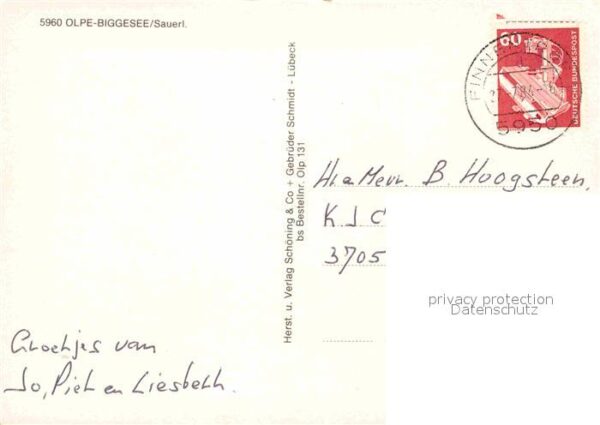 5960 OLPE-BIGGESEE/Sauerl.
60
DEUTSCHE BUNDESPOST
5950
Herst. u. Verlag Schöning & Co + Gebrüder Schmidt - Lübeck
bs Bestellnr. Olp 131
B. Hoogsteen,
K J C
3705
privacy protection
Datenschutz
Groetjes van
Jo, Piet en Liesbeth.